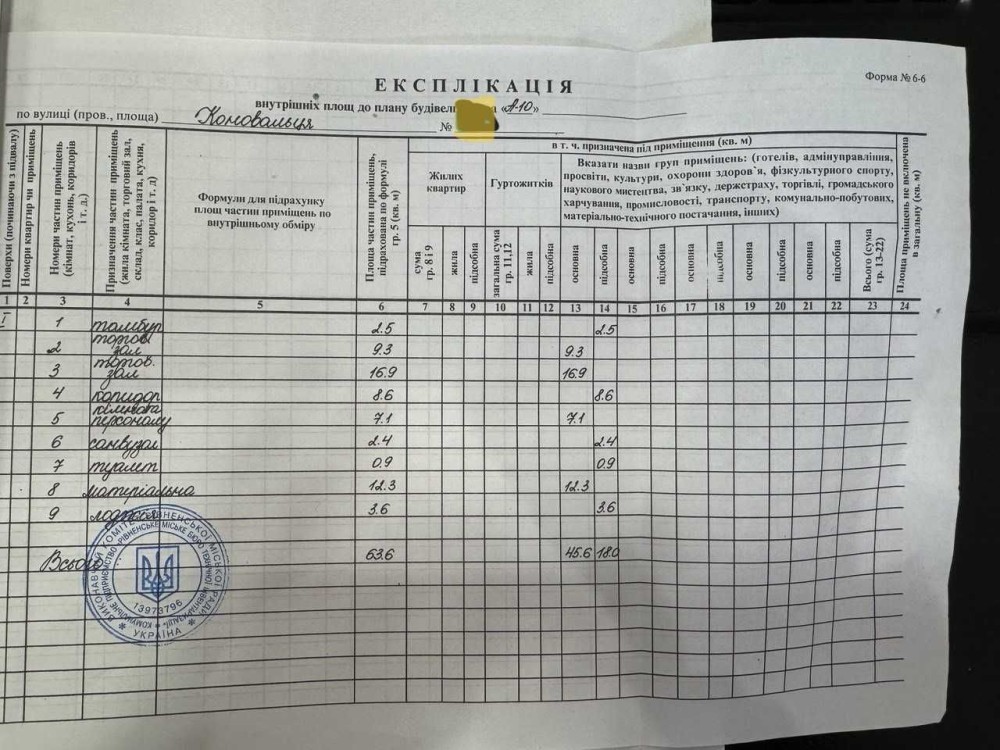 Форма № 6-6
ЕКСПЛІКАЦІЯ
внутрішніх площ до плану будівель «А-10»
по вулиці (пров., площа) Коновальця №
Поверхи (починаючи з підвалу)
Номери квартир чи приміщень
Номери частин приміщень (кімнат, кухонь, коридорів і т. д.)
Призначення частин приміщень (жила кімната, торговий зал, склад, клас, палата, кухня, коридор і т. д)
Формули для підрахунку площ частин приміщень по внутрішньому обміру
Площа частин приміщень, підрахована по формулі гр. 5 (кв. м)
в т. ч. призначена під приміщення (кв. м)
Жилих квартир
Гуртожитків
Вказати назви груп приміщень: (готелів, адмінуправління, просвіти, культури, охорони здоров`я, фізкультурного спорту, наукового мистецтва, зв`язку, держстраху, торгівлі, громадського харчування, промисловості, транспорту, комунально-побутових, матеріально-технічного постачання, інших)
Площа приміщень не включена в загальну (кв. м)
сума гр. 8 і 9
жила
підсобна
загальна сума гр. 11,12
жила
підсобна
основна
підсобна
основна
підсобна
основна
підсобна
основна
підсобна
основна
підсобна
Всього (сума гр. 13-22)
1 2 3 4 5 6 7 8 9 10 11 12 13 14 15 16 17 18 19 20 21 22 23 24
I 1 тамбур 2.5 2.5
2 торгов. зал 9.3 9.3
3 торгов. зал 16.9 16.9
4 коридор 8.6 8.6
5 кімната персоналу 7.1 7.1
6 санвузол 2.4 2.4
7 туалет 0.9 0.9
8 матеріальна 12.3 12.3
9 лоджія 3.6 3.6
Всього 63.6 45.6 18.0
ВИКОНАВЧИЙ КОМІТЕТ РІВНЕНСЬКОЇ МІСЬКОЇ РАДИ
УКРАЇНА
КОМУНАЛЬНЕ ПІДПРИЄМСТВО «РІВНЕНСЬКЕ МІСЬКЕ БЮРО ТЕХНІЧНОЇ ІНВЕНТАРИЗАЦІЇ»
13973796